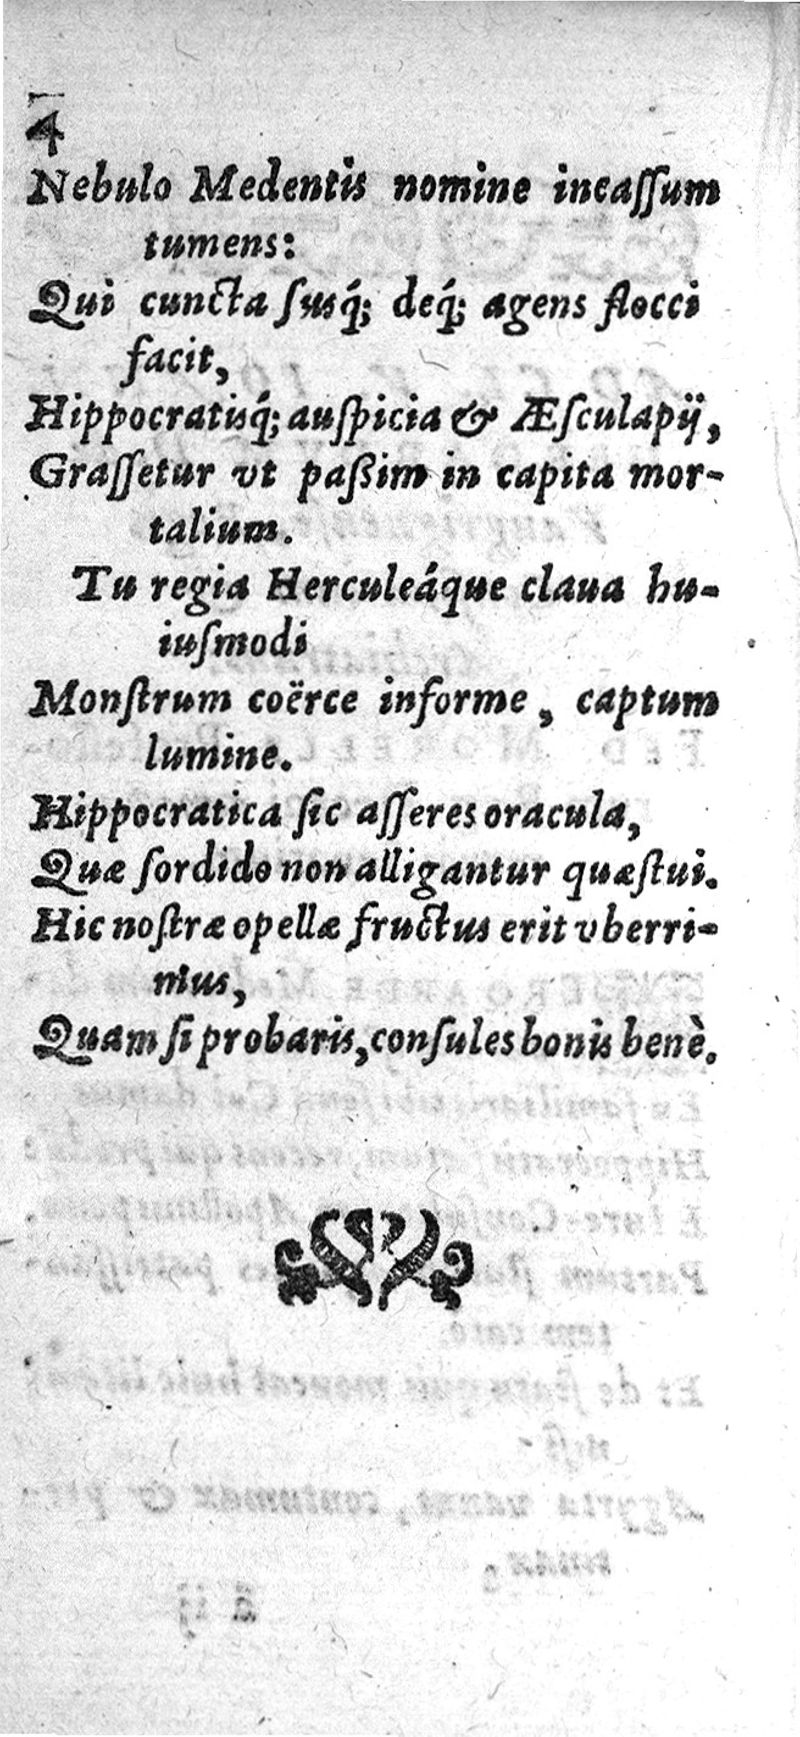 4
Nebulo Medentis nomine incaſſum
tumens:
Qui cuncta ſusq́; deq́; agens flocci
facit,
Hippocratisq́; auſpicia & Æſculapij,
Graſſetur vt paßim in capita mor-
talium.
Tu regia Herculeáque claua hu-
iuſmodi
Monſtrum coërce informe, captum
lumine.
Hippocratica ſic aſſeres oracula,
Quæ ſordido non alligantur quæſtui.
Hic noſtræ opellæ fructus erit vberri-
mus,
Quam ſi probaris, conſules bonis benè.